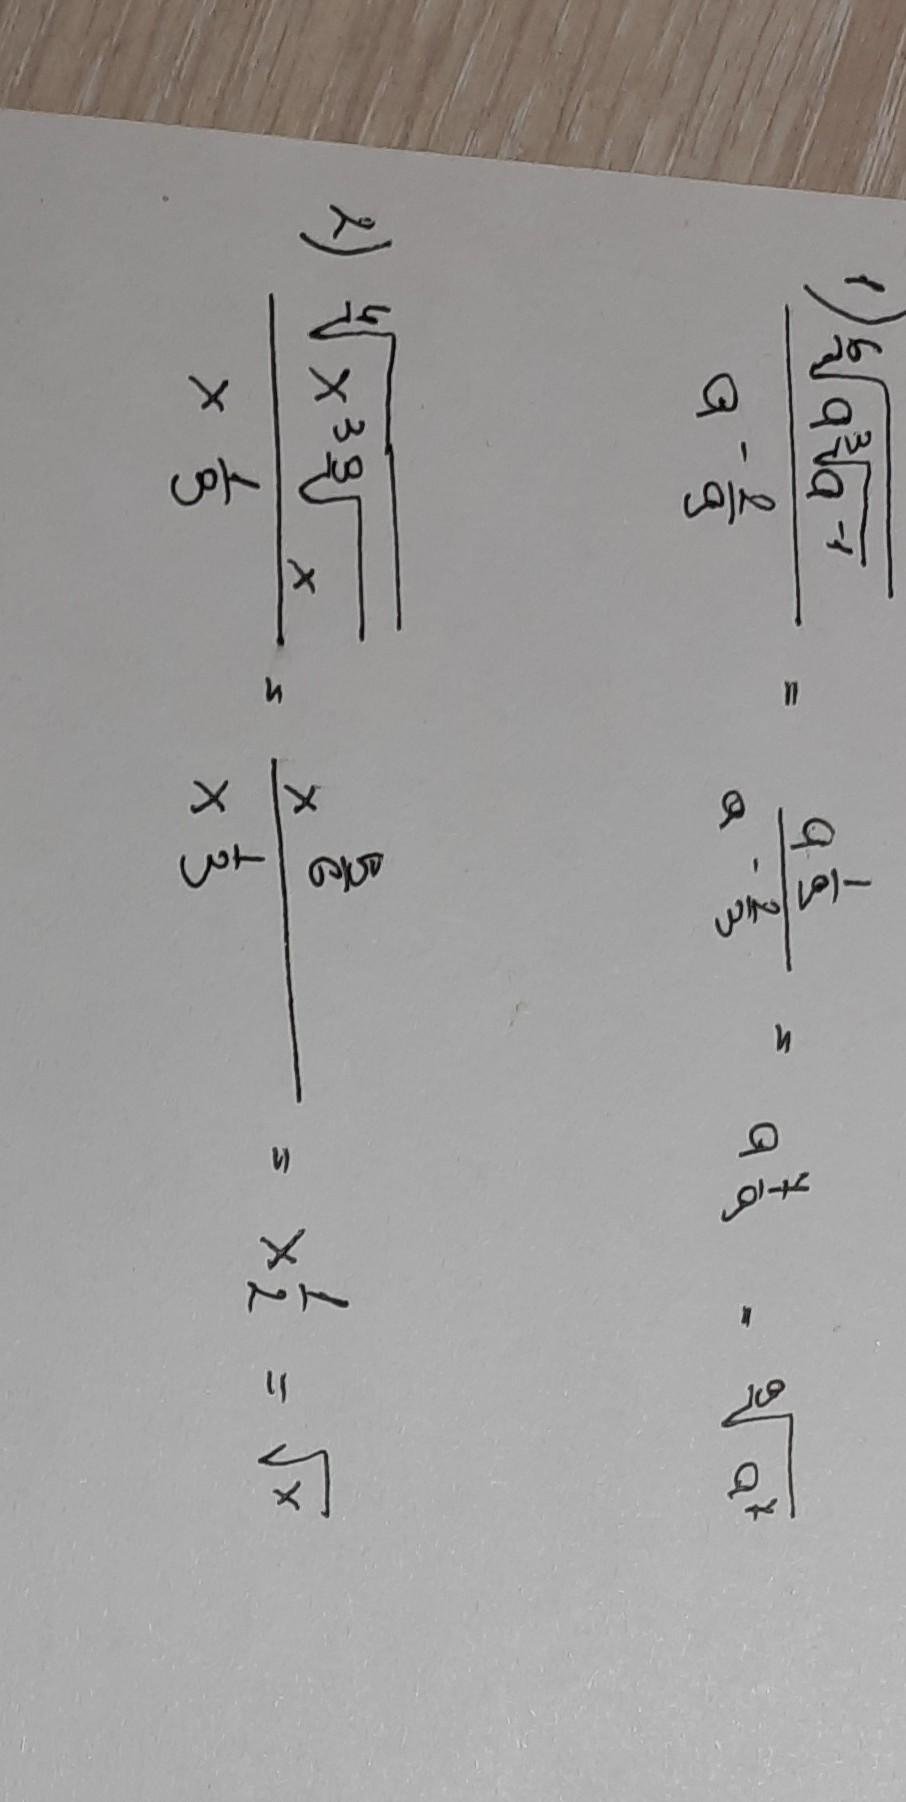 1) \frac{\sqrt[6]{a\sqrt[3]{a^{-1}}}}{a^{-\frac{2}{9}}} = \frac{a^{\frac{1}{9}}}{a^{-\frac{2}{3}}} = a^{\frac{7}{9}} = \sqrt[9]{a^7}
2) \frac{\sqrt[4]{x^3\sqrt[3]{x}}}{x^{\frac{1}{3}}} = \frac{x^{\frac{5}{6}}}{x^{\frac{1}{3}}} = x^{\frac{1}{2}} = \sqrt{x}